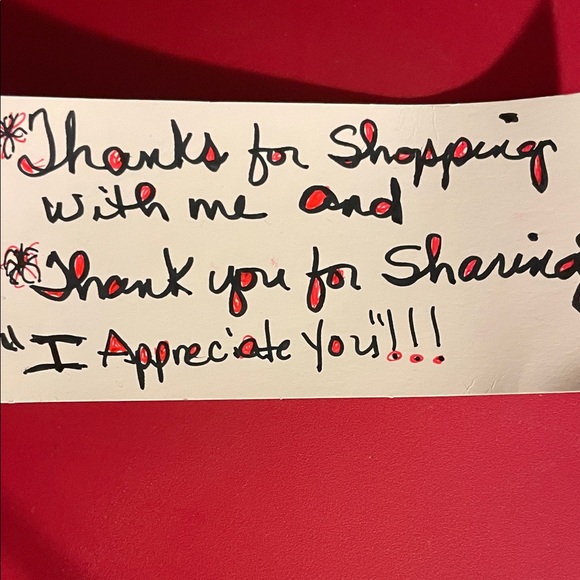 *Thanks for Shopping
with me and
*Thank you for Sharing
"I Appreciate You"!!!